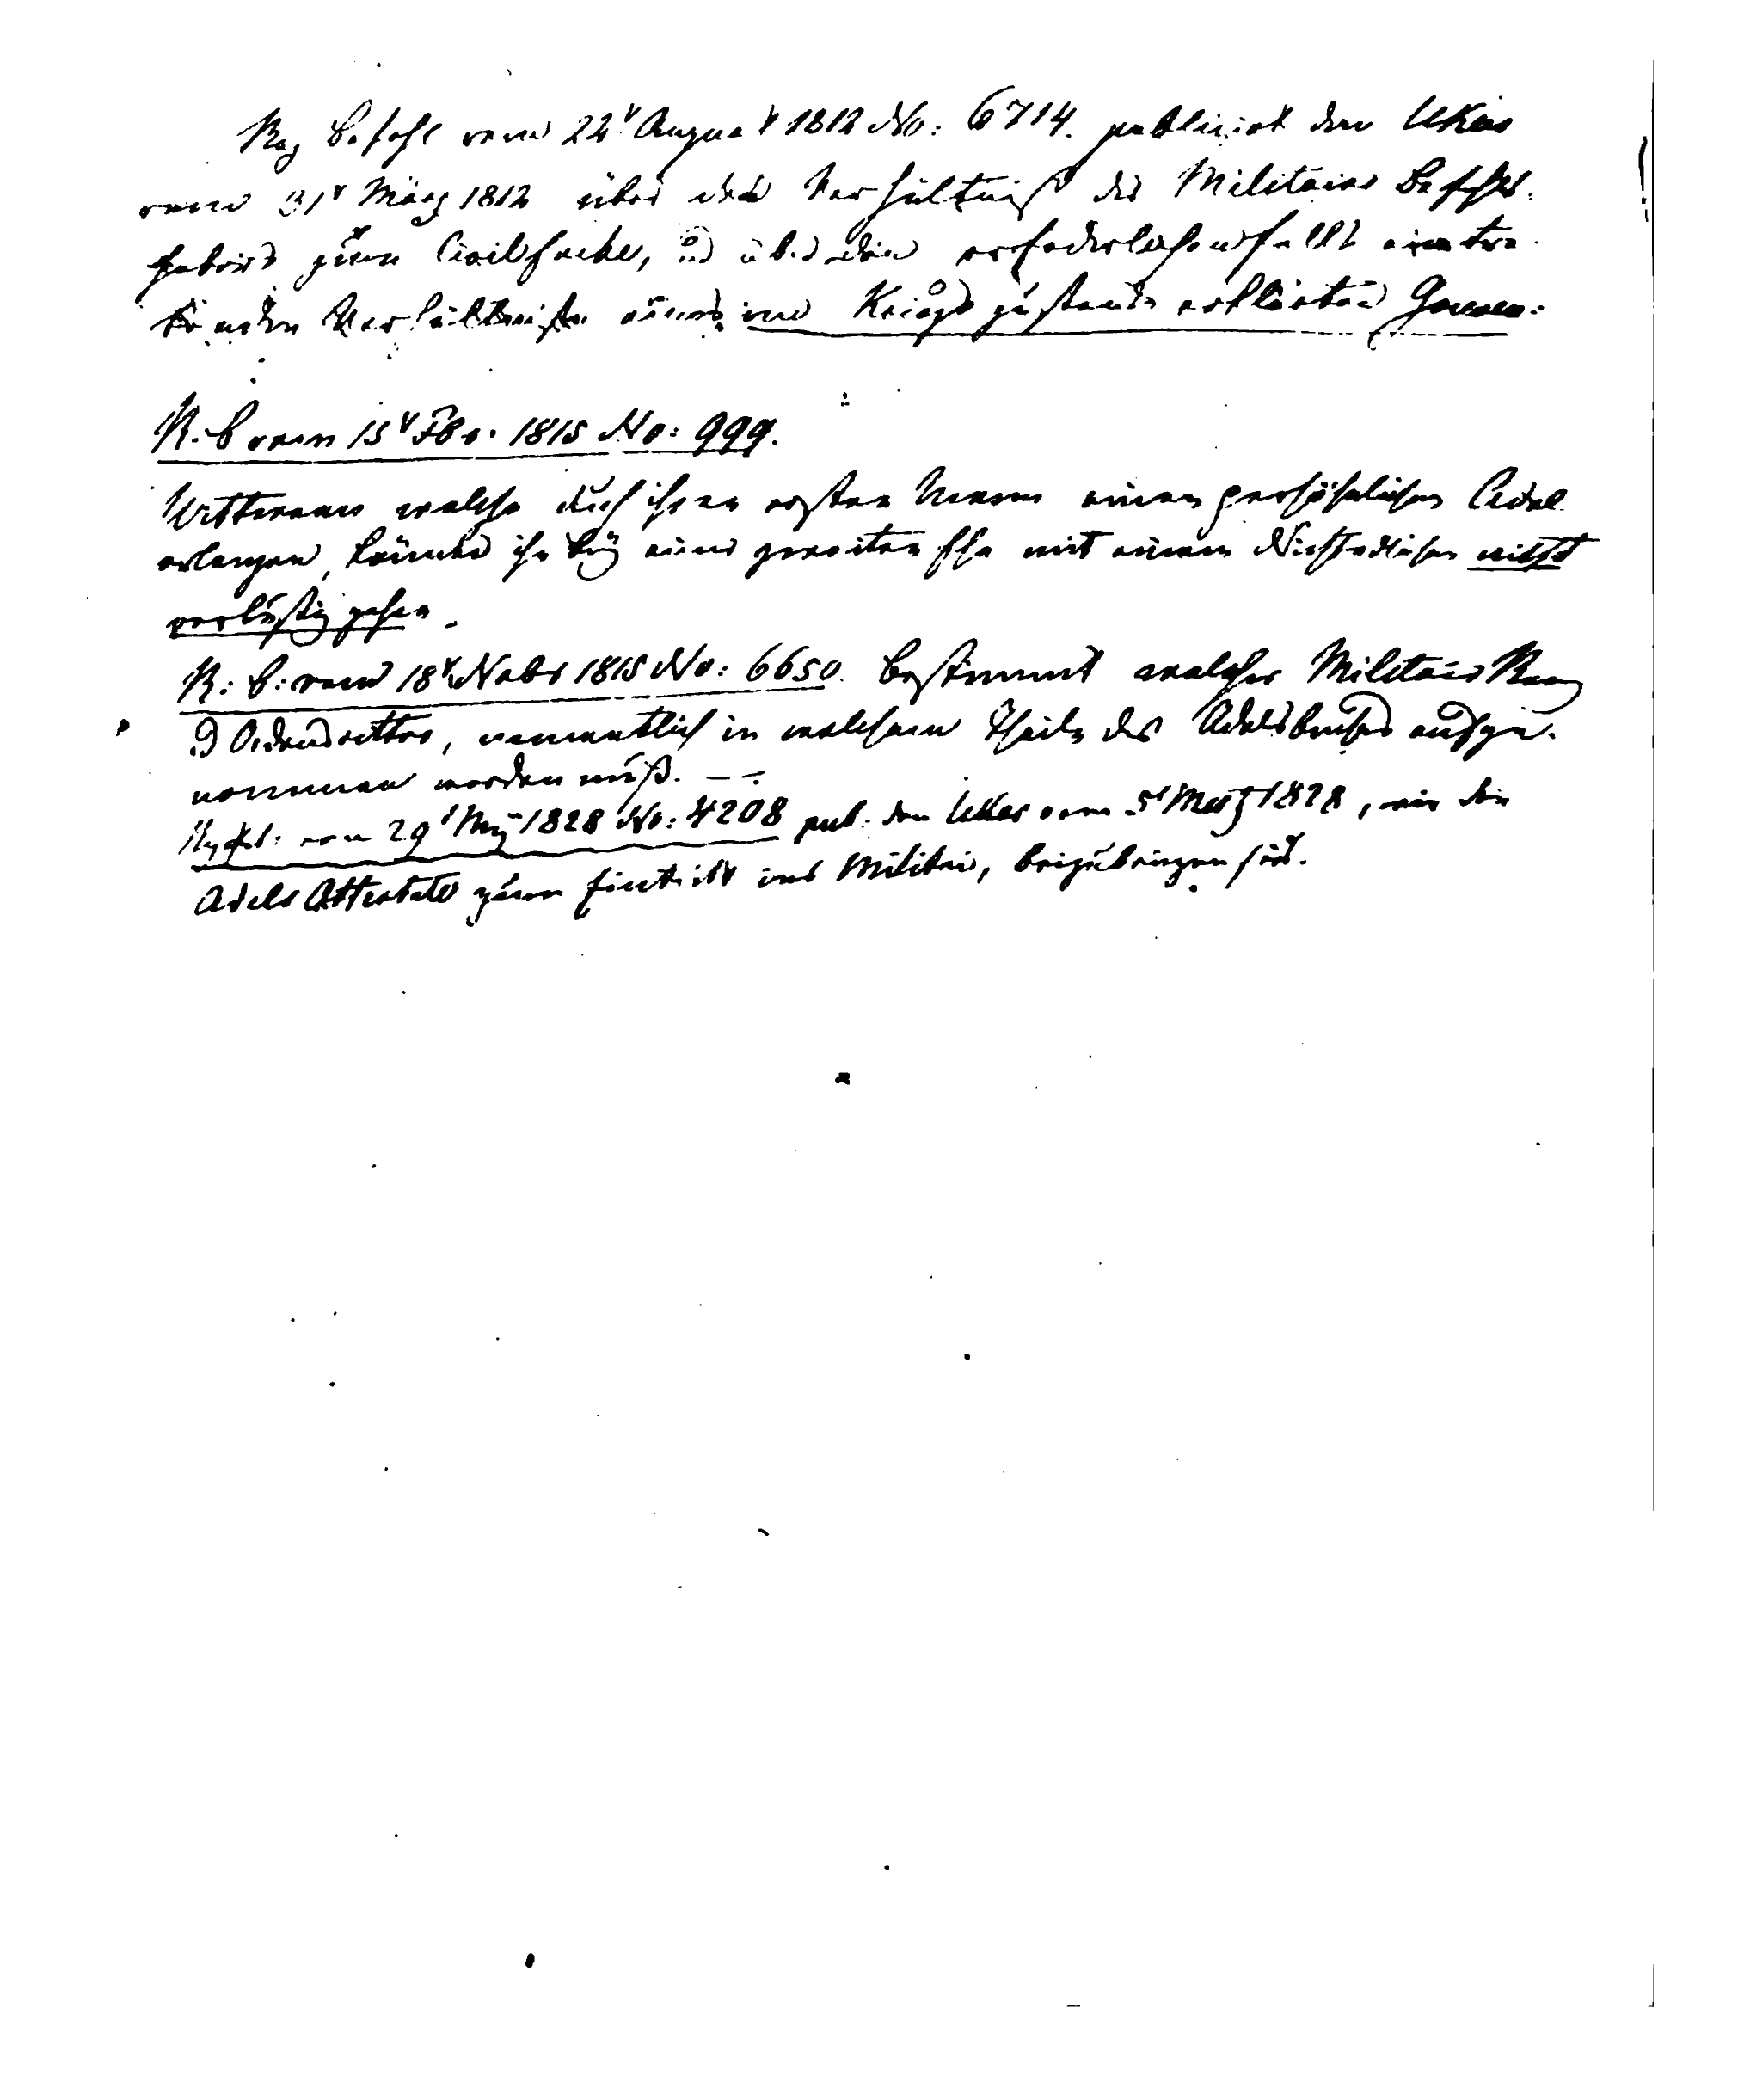 Reg Befehl vom 22t August 1812 No: 6714. publicirt den Ukas
vom 31t März 1812 über das Verhältniß des Militair Befehls-
habers zum Civilfache, und über die erforderlichenfalls eintre-
tenden Verhältniße eines im Kriegszustande erklärten Gouver:
R. B vom 15t Fbr. 1815 No: 999.
Wittwen welche durch ihren ersten Mann einen persöhnlichen Adel
erlangen, können ihn durch eine zweiten Ehe mit einem Nichtadlichen nicht
verlustig gehen.
R: B: vom 18t Nobr 1815 No: 6650. bestimmt welcher Militair Rang
Ordensritter, namentlich in welchem Theile des Adelsbuches aufge-
nommen werden muß. --
vom 29t May 1828 No: 4208 pub: den Ukas vom 5t Merz 1828, wie die
Adels Attestate zum Eintritt ins Militair, beizubringen sind.